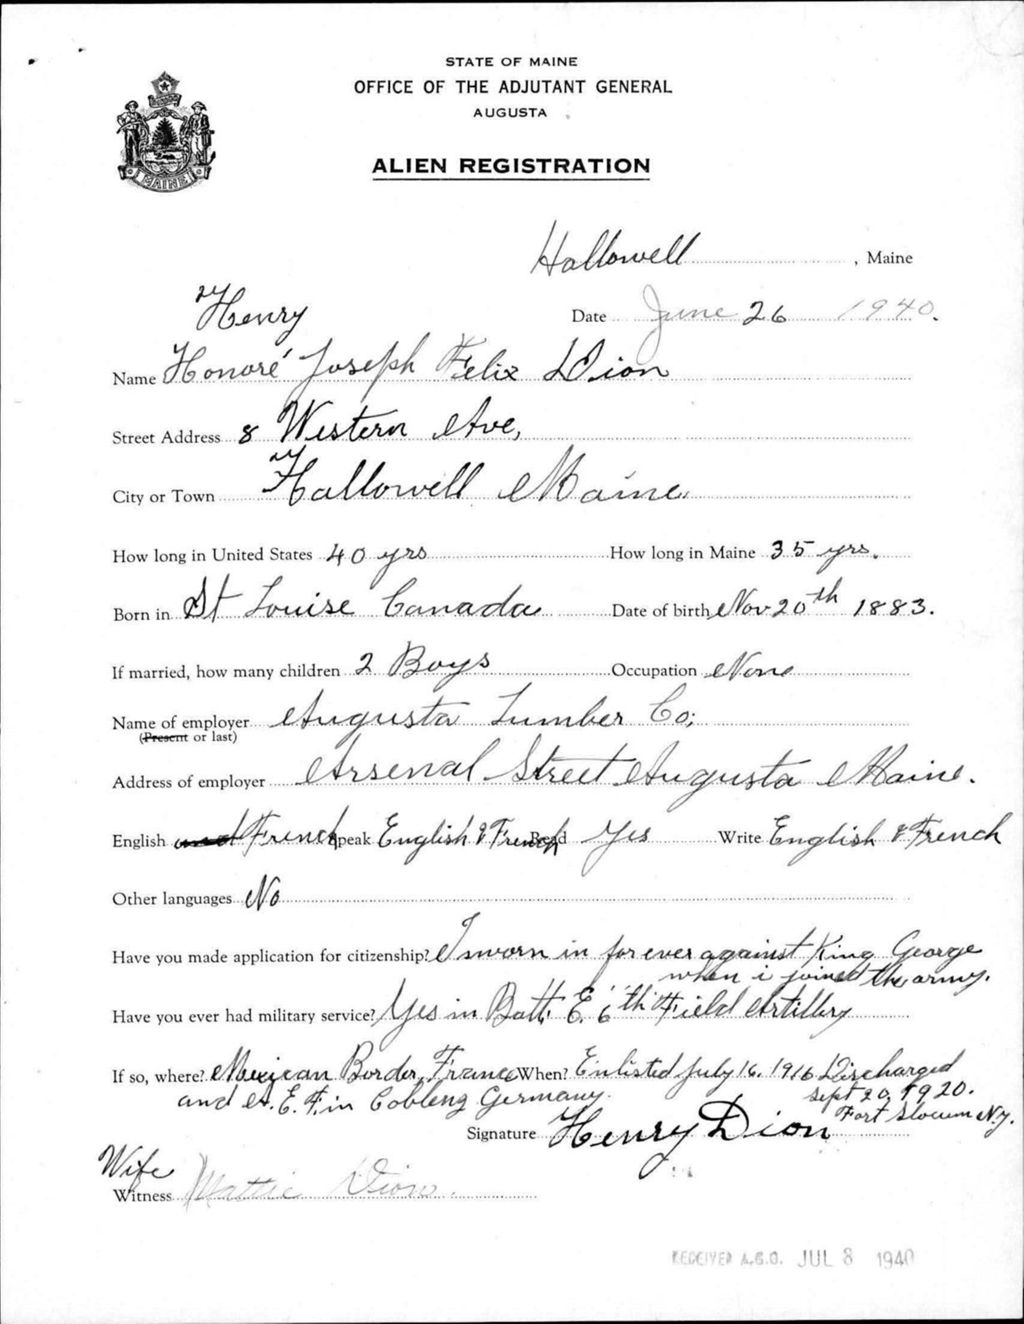 STATE OF MAINE
OFFICE OF THE ADJUTANT GENERAL
AUGUSTA
ALIEN REGISTRATION
MAINE
Hallowell, Maine
Henry
Date June 26 1940.
Name Honoré Joseph Felix Dion
Street Address 8 Western Ave,
City or Town Hallowell Maine.
How long in United States 40 yrs How long in Maine 35 yrs.
Born in St Louise Canada Date of birth Nov 20th 1883.
If married, how many children 2 Boys Occupation None
Name of employer Augusta Lumber Co;
(Present or last)
Address of employer Arsenal Street Augusta Maine.
English and French Speak English & French Read Yes Write English & French
Other languages No
Have you made application for citizenship? I sworn in for ever against King George
when i joined the army.
Have you ever had military service? Yes in Batt. E. 6th Field Artillery
If so, where? Mexican Border, France When? Enlisted July 16. 1916 Discharged
and A. E. F. in Coblenz Germany. Sept 20, 1920.
Fort Slocum N.Y.
Signature Henry Dion
Wife
Witness Mattie Dion.
RECEIVED A.G.O. JUL 8 1940